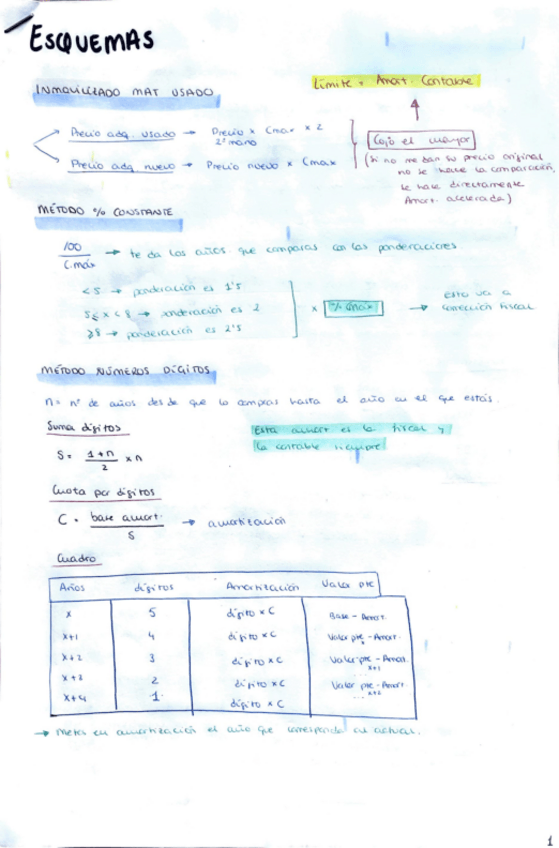 ESQUEMAS
INMOVILIZADO MAT USADO
Límite = Amort. Contable
Precio adq. usado → Precio x Cmax x 2
2ª mano
Cojo el mayor
Precio adq nuevo → Precio nuevo x Cmax
(si no me dan su precio original
no se hace la comparación,
se hace directamente
Amort. acelerada)
MÉTODO % CONSTANTE
100 / C.máx → te da los años que comparas con las ponderaciones
< 5 → ponderación es 1'5
5 ≤ x < 8 → ponderación es 2
≥ 8 → ponderación es 2'5
x % Cmax → esto va a
corrección fiscal
MÉTODO NÚMEROS DÍGITOS
n = nº de años desde que lo compras hasta el año en el que estás.
Suma dígitos
Esta amort es la fiscal y
la contable siempre
S = 1 + n / 2 x n
Cuota por dígitos
C = base amort. / S → amortización
Cuadro
Años dígitos Amortización Valor pte
x 5 dígito x C Base - Amort.
x+1 4 dígito x C Valor pte x - Amort.
x+2 3 dígito x C Valor pte x+1 - Amort.
x+3 2 dígito x C Valor pte x+2 - Amort.
x+4 1 dígito x C
→ Metes en amortización el año que corresponda en actual.
1